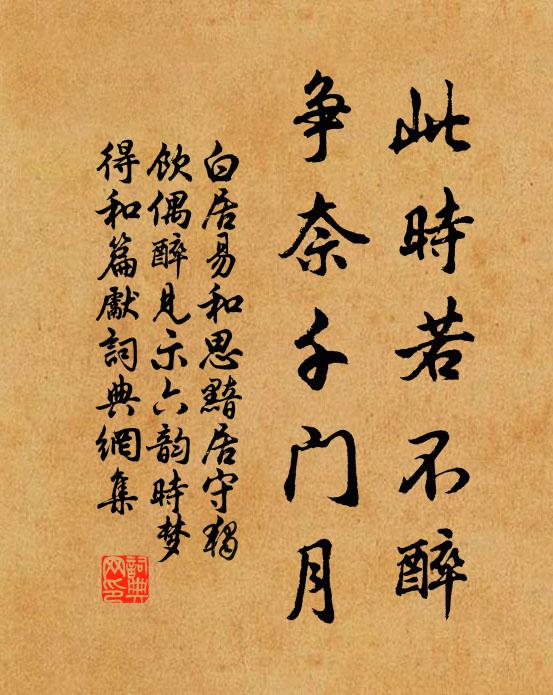 此時若不醉
争奈千门月
白居易和思黯居守獨
飲偶醉見示六韵時梦
得和篇獻詞典網集
詞典网印